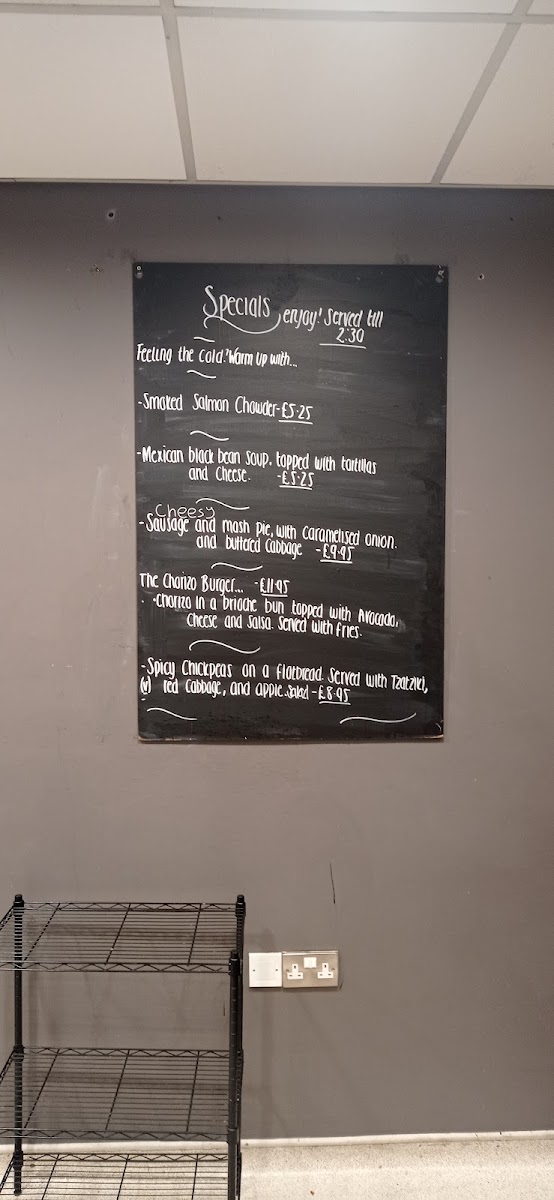 Specials enjoy! Served till
2:30
Feeling the cold? Warm up with...
-Smoked Salmon Chowder-£5.25
-Mexican black bean soup. topped with tortillas
and Cheese. -£5.25
Cheesy
-Sausage and mash pie, with Caramelised onion.
and buttered Cabbage -£9.95
The Chorizo Burger... -£11.95
-Chorizo in a brioche bun topped with Avocado,
Cheese and Salsa. Served with fries.
-Spicy Chickpeas on a flatbread. Served with Tzatziki,
(v) red Cabbage, and apple. Salad -£8.95